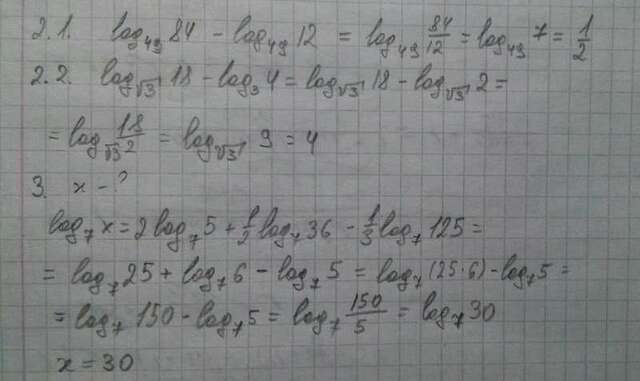 2.1. log₄₉ 84 - log₄₉ 12 = log₄₉ 84/12 = log₄₉ 7 = 1/2
2.2. log_√3 18 - log₃ 4 = log_√3 18 - log_√3 2 =
= log_√3 18/2 = log_√3 9 = 4
3. x - ?
log₇ x = 2 log₇ 5 + 1/2 log₇ 36 - 1/3 log₇ 125 =
= log₇ 25 + log₇ 6 - log₇ 5 = log₇ (25·6) - log₇ 5 =
= log₇ 150 - log₇ 5 = log₇ 150/5 = log₇ 30
x = 30